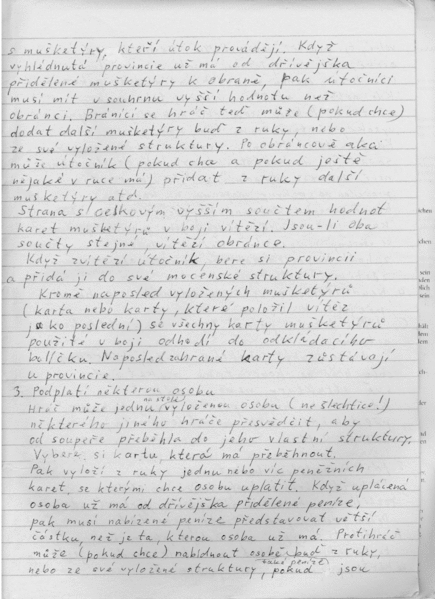 s mušketýry, kteří útok provádějí. Když
vyhlédnutá provincie už má od dřívějška
přidělené mušketýry k obraně, pak útočníci
musí mít v souhrnu vyšší hodnotu než
obránci. Bránící se hráč teď může (pokud chce)
dodat další mušketýry buď z ruky, nebo
ze své vyložené struktury. Po obráncově akci
může útočník (pokud chce a pokud ještě
nějaké v ruce má) přidat z ruky další
mušketýry atd.
Strana s celkovým vyšším součtem hodnot
karet mušketýrů v boji vítězí. Jsou-li oba
součty stejné, vítězí obránce.
Když zvítězí útočník, bere si provincii
a přidá ji do své mocenské struktury.
Kromě naposled vyložených mušketýrů
(karta nebo karty, které položil vítěz
jako poslední) se všechny karty mušketýrů
použité v boji odhodí do odkládacího
balíčku. Naposled zahrané karty zůstávají
u provincie.
3. Podplatí některou osobu
Hráč může jednu na stole vyloženou osobu (ne šlechtice!)
některého jiného hráče přesvědčit, aby
od soupeře přeběhla do jeho vlastní struktury.
Vybere si kartu, která má přeběhnout.
Pak vyloží z ruky jednu nebo víc peněžních
karet, se kterými chce osobu uplatit. Když uplácená
osoba už má od dřívějška přidělené peníze,
pak musí nabízené peníze představovat větší
částku, než je ta, kterou osoba už má. Protihráč
může (pokud chce) nabídnout osobě buď z ruky,
nebo ze své vyložené struktury, také peníze, pokud jsou